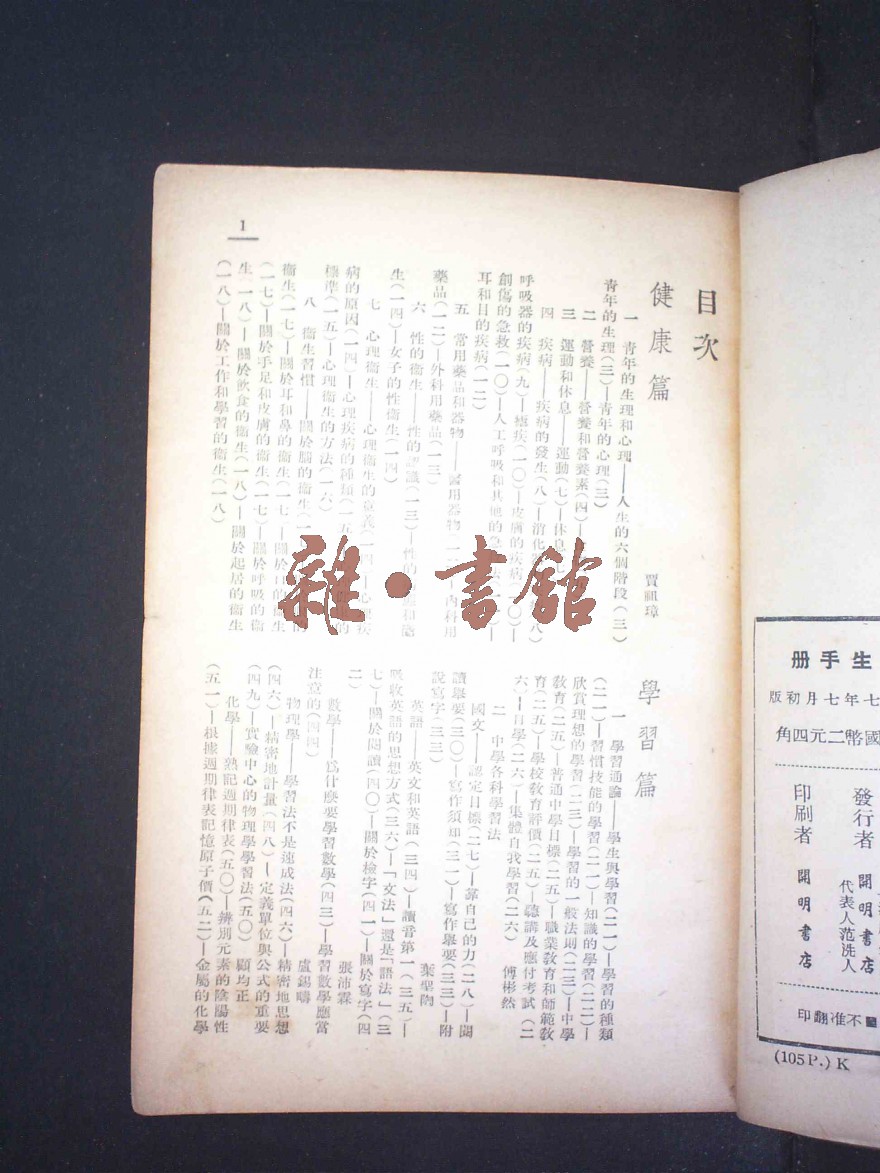 目次
健康篇
賈祖璋
一 青年的生理和心理——人生的六個階段(三)
青年的生理(三)—青年的心理(三)
二 營養——營養和營養素(四)—
三 運動和休息——運動(七)—休息
四 疾病——疾病的發生(八)—消化 八)
呼吸器的疾病(九)—瘧疾(一〇)—皮膚的疾病(一〇)—
創傷的急救(一〇)—人工呼吸和其他的急
耳和目的疾病(一二)
五 常用藥品和器物——醫用器物 內科用
藥品(一二)—外科用藥品(一三)
六 性的衞生——性的認識(一三)—性的 和衞
生(一四)—女子的性衞生(一四)
七 心理衞生——心理衞生的意義(一四)—心理疾
病的原因(一四)—心理疾病的種類(一五 的
標準(一五)—心理衞生的方法(一六)
八 衞生習慣——關於腦的衞生 的
衞生(一七)—關於耳和鼻的衞生(一七 關於口的衞生
(一七)—關於手足和皮膚的衞生(一七)—關於呼吸的衞
生(一八)—關於飲食的衞生(一八)—關於起居的衞生
(一八)—關於工作和學習的衞生(一八)
學習篇
一 學習通論——學生與學習(二一)—學習的種類
(二一)—習慣技能的學習(二一)—知識的學習(二二)—
欣賞理想的學習(二三)—學習的一般法則(二三)—中學
教育(二五)—普通中學目標(二五)—職業教育和師範教
育(二五)—學校教育評價(二五)—聽講及應付考試(二
六)—自學(二六)—集體自我學習(二六) 傅彬然
二 中學各科學習法
國文——認定目標(二七)—靠自己的力(二八)—閱
讀舉要(三〇)—寫作須知(三一)—寫作舉要(三三)—附
說寫字(三三) 葉聖陶
英語——英文和英語(三四)—讀音第一(三五)—
吸收英語的思想方式(三六)—「文法」還是「語法」(三
七)—關於閱讀(四〇)—關於檢字(四一)—關於寫字(四
二) 張沛霖
數學——爲什麼要學習數學(四三)—學習數學應當
注意的(四四) 盧錫疇
物理學——學習法不是速成法(四六)—精密地思想
(四六)—精密地計量(四八)—定義單位與公式的重要
(四九)—實驗中心的物理學學習法(五〇) 顧均正
化學——熟記週期律表(五〇)—辨別元素的陰陽性
(五一)—根據週期律表記憶原子價(五二)—金屬的化學
1
雜·書館
生手册
七年七月初版
國幣二元四角
發行者 開明書店
代表人范洗人
印刷者 開明書店
不准翻印
(105P.) K